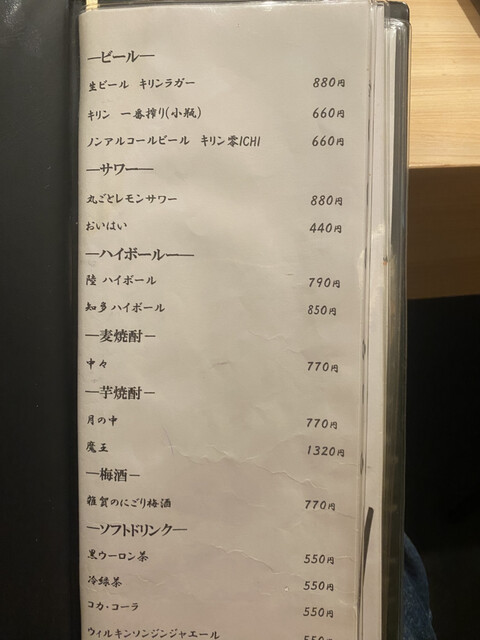 ―ビール―
生ビール キリンラガー 880円
キリン 一番搾り(小瓶) 660円
ノンアルコールビール キリン零ICHI 660円
―サワー―
丸ごとレモンサワー 880円
おいはい 440円
―ハイボールー―
陸 ハイボール 790円
知多ハイボール 850円
―麦焼酎―
中々 770円
―芋焼酎―
月の中 770円
魔王 1320円
―梅酒―
雑賀のにごり梅酒 770円
―ソフトドリンク―
黒ウーロン茶 550円
冷緑茶 550円
コカ・コーラ 550円
ウィルキンソンジンジャエール 550円